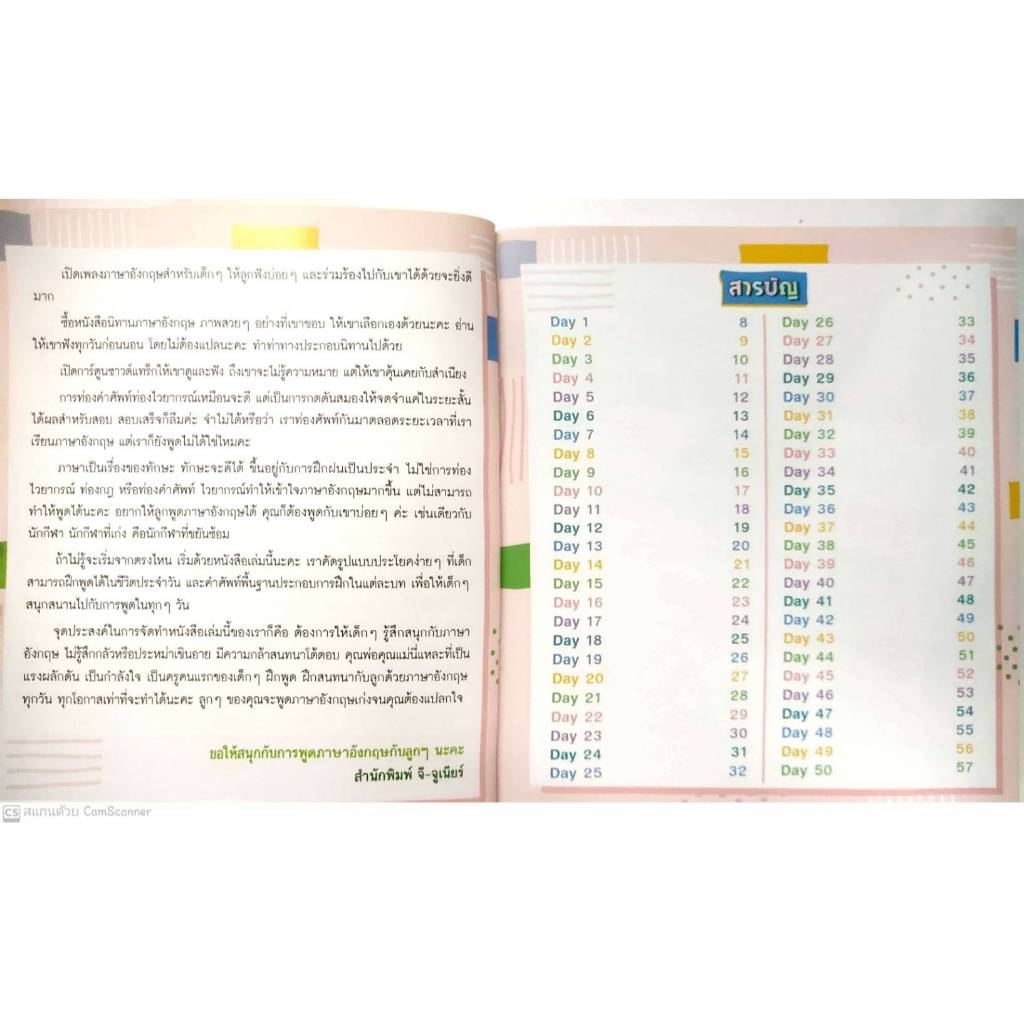 เปิดเพลงภาษาอังกฤษสำหรับเด็กๆ ให้ลูกฟังบ่อยๆ และร่วมร้องไปกับเขาได้ด้วยจะยิ่งดี
มาก
ซื้อหนังสือนิทานภาษาอังกฤษ ภาพสวยๆ อย่างที่เขาชอบ ให้เขาเลือกเองด้วยนะคะ อ่าน
ให้เขาฟังทุกวันก่อนนอน โดยไม่ต้องแปลนะคะ ทำท่าทางประกอบนิทานไปด้วย
เปิดการ์ตูนซาวด์แทร็กให้เขาดูและฟัง ถึงเขาจะไม่รู้ความหมาย แต่ให้เขาคุ้นเคยกับสำเนียง
การท่องคำศัพท์ท่องไวยากรณ์เหมือนจะดี แต่เป็นการกดดันสมองให้จดจำแค่ในระยะสั้น
ได้ผลสำหรับสอบ สอบเสร็จก็ลืมค่ะ จำไม่ได้หรือว่า เราท่องศัพท์กันมาตลอดระยะเวลาที่เรา
เรียนภาษาอังกฤษ แต่เราก็ยังพูดไม่ได้ใช่ไหมคะ
ภาษาเป็นเรื่องของทักษะ ทักษะจะดีได้ ขึ้นอยู่กับการฝึกฝนเป็นประจำ ไม่ใช่การท่อง
ไวยากรณ์ ท่องกฎ หรือท่องคำศัพท์ ไวยากรณ์ทำให้เข้าใจภาษาอังกฤษมากขึ้น แต่ไม่สามารถ
ทำให้พูดได้นะคะ อยากให้ลูกพูดภาษาอังกฤษได้ คุณก็ต้องพูดกับเขาบ่อยๆ ค่ะ เช่นเดียวกับ
นักกีฬา นักกีฬาที่เก่ง คือนักกีฬาที่ขยันซ้อม
ถ้าไม่รู้จะเริ่มจากตรงไหน เริ่มด้วยหนังสือเล่มนี้นะคะ เราคัดรูปแบบประโยคง่ายๆ ที่เด็ก
สามารถฝึกพูดได้ในชีวิตประจำวัน และคำศัพท์พื้นฐานประกอบการฝึกในแต่ละบท เพื่อให้เด็กๆ
สนุกสนานไปกับการพูดในทุกๆ วัน
จุดประสงค์ในการจัดทำหนังสือเล่มนี้ของเราก็คือ ต้องการให้เด็กๆ รู้สึกสนุกกับภาษา
อังกฤษ ไม่รู้สึกกลัวหรือประหม่าเขินอาย มีความกล้าสนทนาโต้ตอบ คุณพ่อคุณแม่นี่แหละที่เป็น
แรงผลักดัน เป็นกำลังใจ เป็นครูคนแรกของเด็กๆ ฝึกพูด ฝึกสนทนากับลูกด้วยภาษาอังกฤษ
ทุกวัน ทุกโอกาสเท่าที่จะทำได้นะคะ ลูกๆ ของคุณจะพูดภาษาอังกฤษเก่งจนคุณต้องแปลกใจ
ขอให้สนุกกับการพูดภาษาอังกฤษกับลูกๆ นะคะ
สำนักพิมพ์ จี-จูเนียร์
สารบัญ
Day 1 8
Day 2 9
Day 3 10
Day 4 11
Day 5 12
Day 6 13
Day 7 14
Day 8 15
Day 9 16
Day 10 17
Day 11 18
Day 12 19
Day 13 20
Day 14 21
Day 15 22
Day 16 23
Day 17 24
Day 18 25
Day 19 26
Day 20 27
Day 21 28
Day 22 29
Day 23 30
Day 24 31
Day 25 32
Day 26 33
Day 27 34
Day 28 35
Day 29 36
Day 30 37
Day 31 38
Day 32 39
Day 33 40
Day 34 41
Day 35 42
Day 36 43
Day 37 44
Day 38 45
Day 39 46
Day 40 47
Day 41 48
Day 42 49
Day 43 50
Day 44 51
Day 45 52
Day 46 53
Day 47 54
Day 48 55
Day 49 56
Day 50 57
CS สแกนด้วย CamScanner